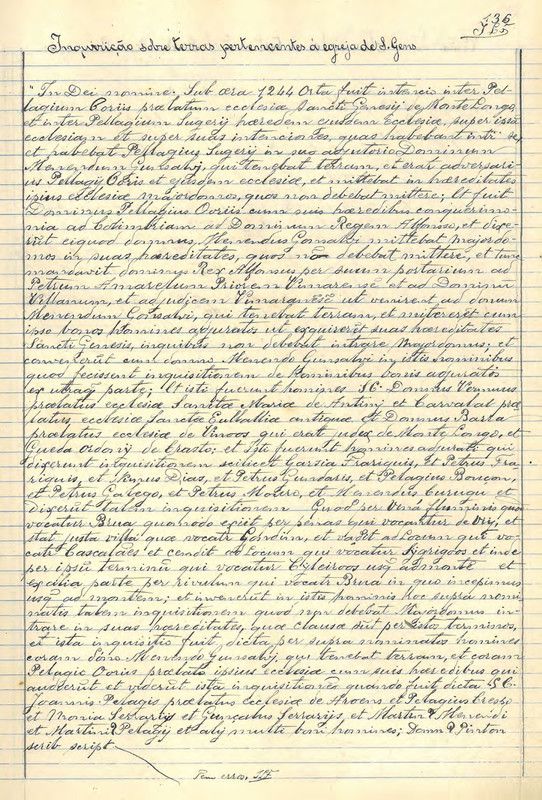 136
Inquirição sobre terras pertencentes á egreja de S. Gens
"In Dei nomine. Sub æra 1244 Orta fuit intencio inter Pel-
lagium Ooriis prælatum ecclesiæ Sancti Genesij de Monte Longo,
et inter Pellagium Sugerij hæredem eiusdem Ecclesiæ, super istã
ecclesiam et super suas intenciones, quas habebant intr se,
et habebat Pellagius Sugerij in suo adjutorio Dominum
Menendum Gunsalvj, qui tenebat terram, et erat adversari-
us Pellagij Ooris et ejusdem ecclesiæ, et mittebat in hæreditates
ipsius ecclesiæ majordomos, quos non debebat mittere; et fuit
Dominus Pellagius Ooriis cum suis hæredibus conquerimo-
nia ad Colimbriam ad Dominum Regem Alfonso, et dixe-
rũt ei quod domnus Menendus Gonsalvj mittebat majordo-
mos in suas hæreditates, quos nõ debebat mittere, et tunc
mandavit dominus Rex Alfonsus per suum portarium ad
Petrum Amarelum Priorem Vimarense et ad Dominũ
Villanum, et ad judicem Vimaranẽsẽ ut venirent ad domum
Menendum Gonsalvi, qui tenebat terram, et mitterẽt cum
ipso bonos homines adjuratos ut exquirerẽt suas hæreditates
Sancti Genesis, in quibus non debebat intrare Majordomus; et
convenerũt cum domno Menendo Gunsalvi in istis hominibus
quod fecissent inquisitionem de hominibus bonis adjuratis
ex utraq̃ parte; Et isti fuerunt homines SC. Domnus Vermuus
prælatus ecclesiæ Sanctæ Mariæ de Antimj et Carvalal præ
latus ecclesiæ Sanctæ Eulalliæ antiquæ Et Domnus Barla
prælatus ecclesiæ de Vinoos qui erat judex de Monte Longo, et
Gueda Ordonij de Crasto; et Isti fuerunt homines adjurati qui
dixerunt inquisitionem scilicet Garsia Frariquis, et Petrus Fra-
riquis, et Nunus Dias, et Petrus Gundaris, et Pelagius Bouçon,
et Petrus Galego, et Petrus Molero, et Menendus Curugu et
dixerũt talem inquisitionem Quod per Venã fluminis quod
vocatur Brua quomodo exiit per penas qui vocantur de Vrij, et
stat justa villã quæ vocatr Gondim, et vadit ad Locum qui vo-
catr Cascalães et cendit ad Locum qui vocatur Sigrigdos et inde
per ipsũ terminũ qui vocatur Cyleiroos usq̃ ad montẽ et
ex alia parte per rivulum qui vocatr Bruã in quo incepimus
usq̃ ad montem; et invenerũt in istis hominis hoc supra nomi-
natis talem inquisitionem quod non debebat Majordomus in-
trare in suas hæreditates, quæ clausæ sũt per istos terminos,
et ista inquisitio fuit dicta per supra nominatos homines
coram dõno Menendo Gunsalvj, qui tenebat terram, et coram
Pelagio Ooriis prælato ipsius ecclesiæ cum suis hæredibus qui
audierũt et viderũt istã inquisitionẽ quando fuit dicta SC.
Joannis Pelagis prælatus Ecclesiæ de Aroens et Pelagius Cresbo
et Monia Serrarijs et Gunçalvus Ferrarijs, et Martin9 Menendi
et Martin9 Pelagij et alij multi boni homines; Domn9 Pinton
scrib script.
Tem erros.